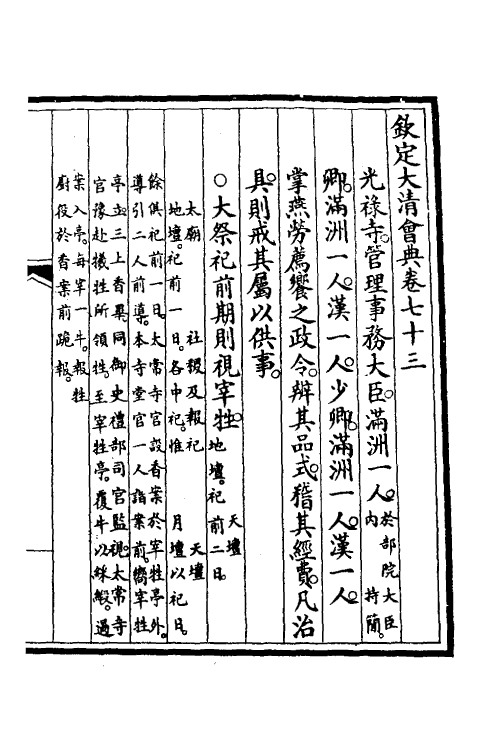 欽定大清會典卷七十三
光祿寺。管理事務大臣。滿洲一人。於部院大臣
內特簡。
卿。滿洲一人。漢一人。少卿。滿洲一人。漢一人。
掌燕勞薦饗之政令。辨其品式。稽其經費。凡治
具。則戒其屬以供事。
○大祭祀前期則視宰牲。天壇
地壇。祀前二日。
太廟 社稷及報祀 天壇
地壇。祀前一日。各中祀。惟 月壇以祀日。
餘俱祀前一日。太常寺官設香案於宰牲亭外。
導引二人前導。本寺堂官一人詣案前。嚮宰牲
亭立。三上香畢。同御史禮部司官監視。太常寺
官豫赴犧牲所領牲。至宰牲亭。覆牛以綵緞。過
案入亭。每宰一牛。報牲
廚役於香案前跪報。